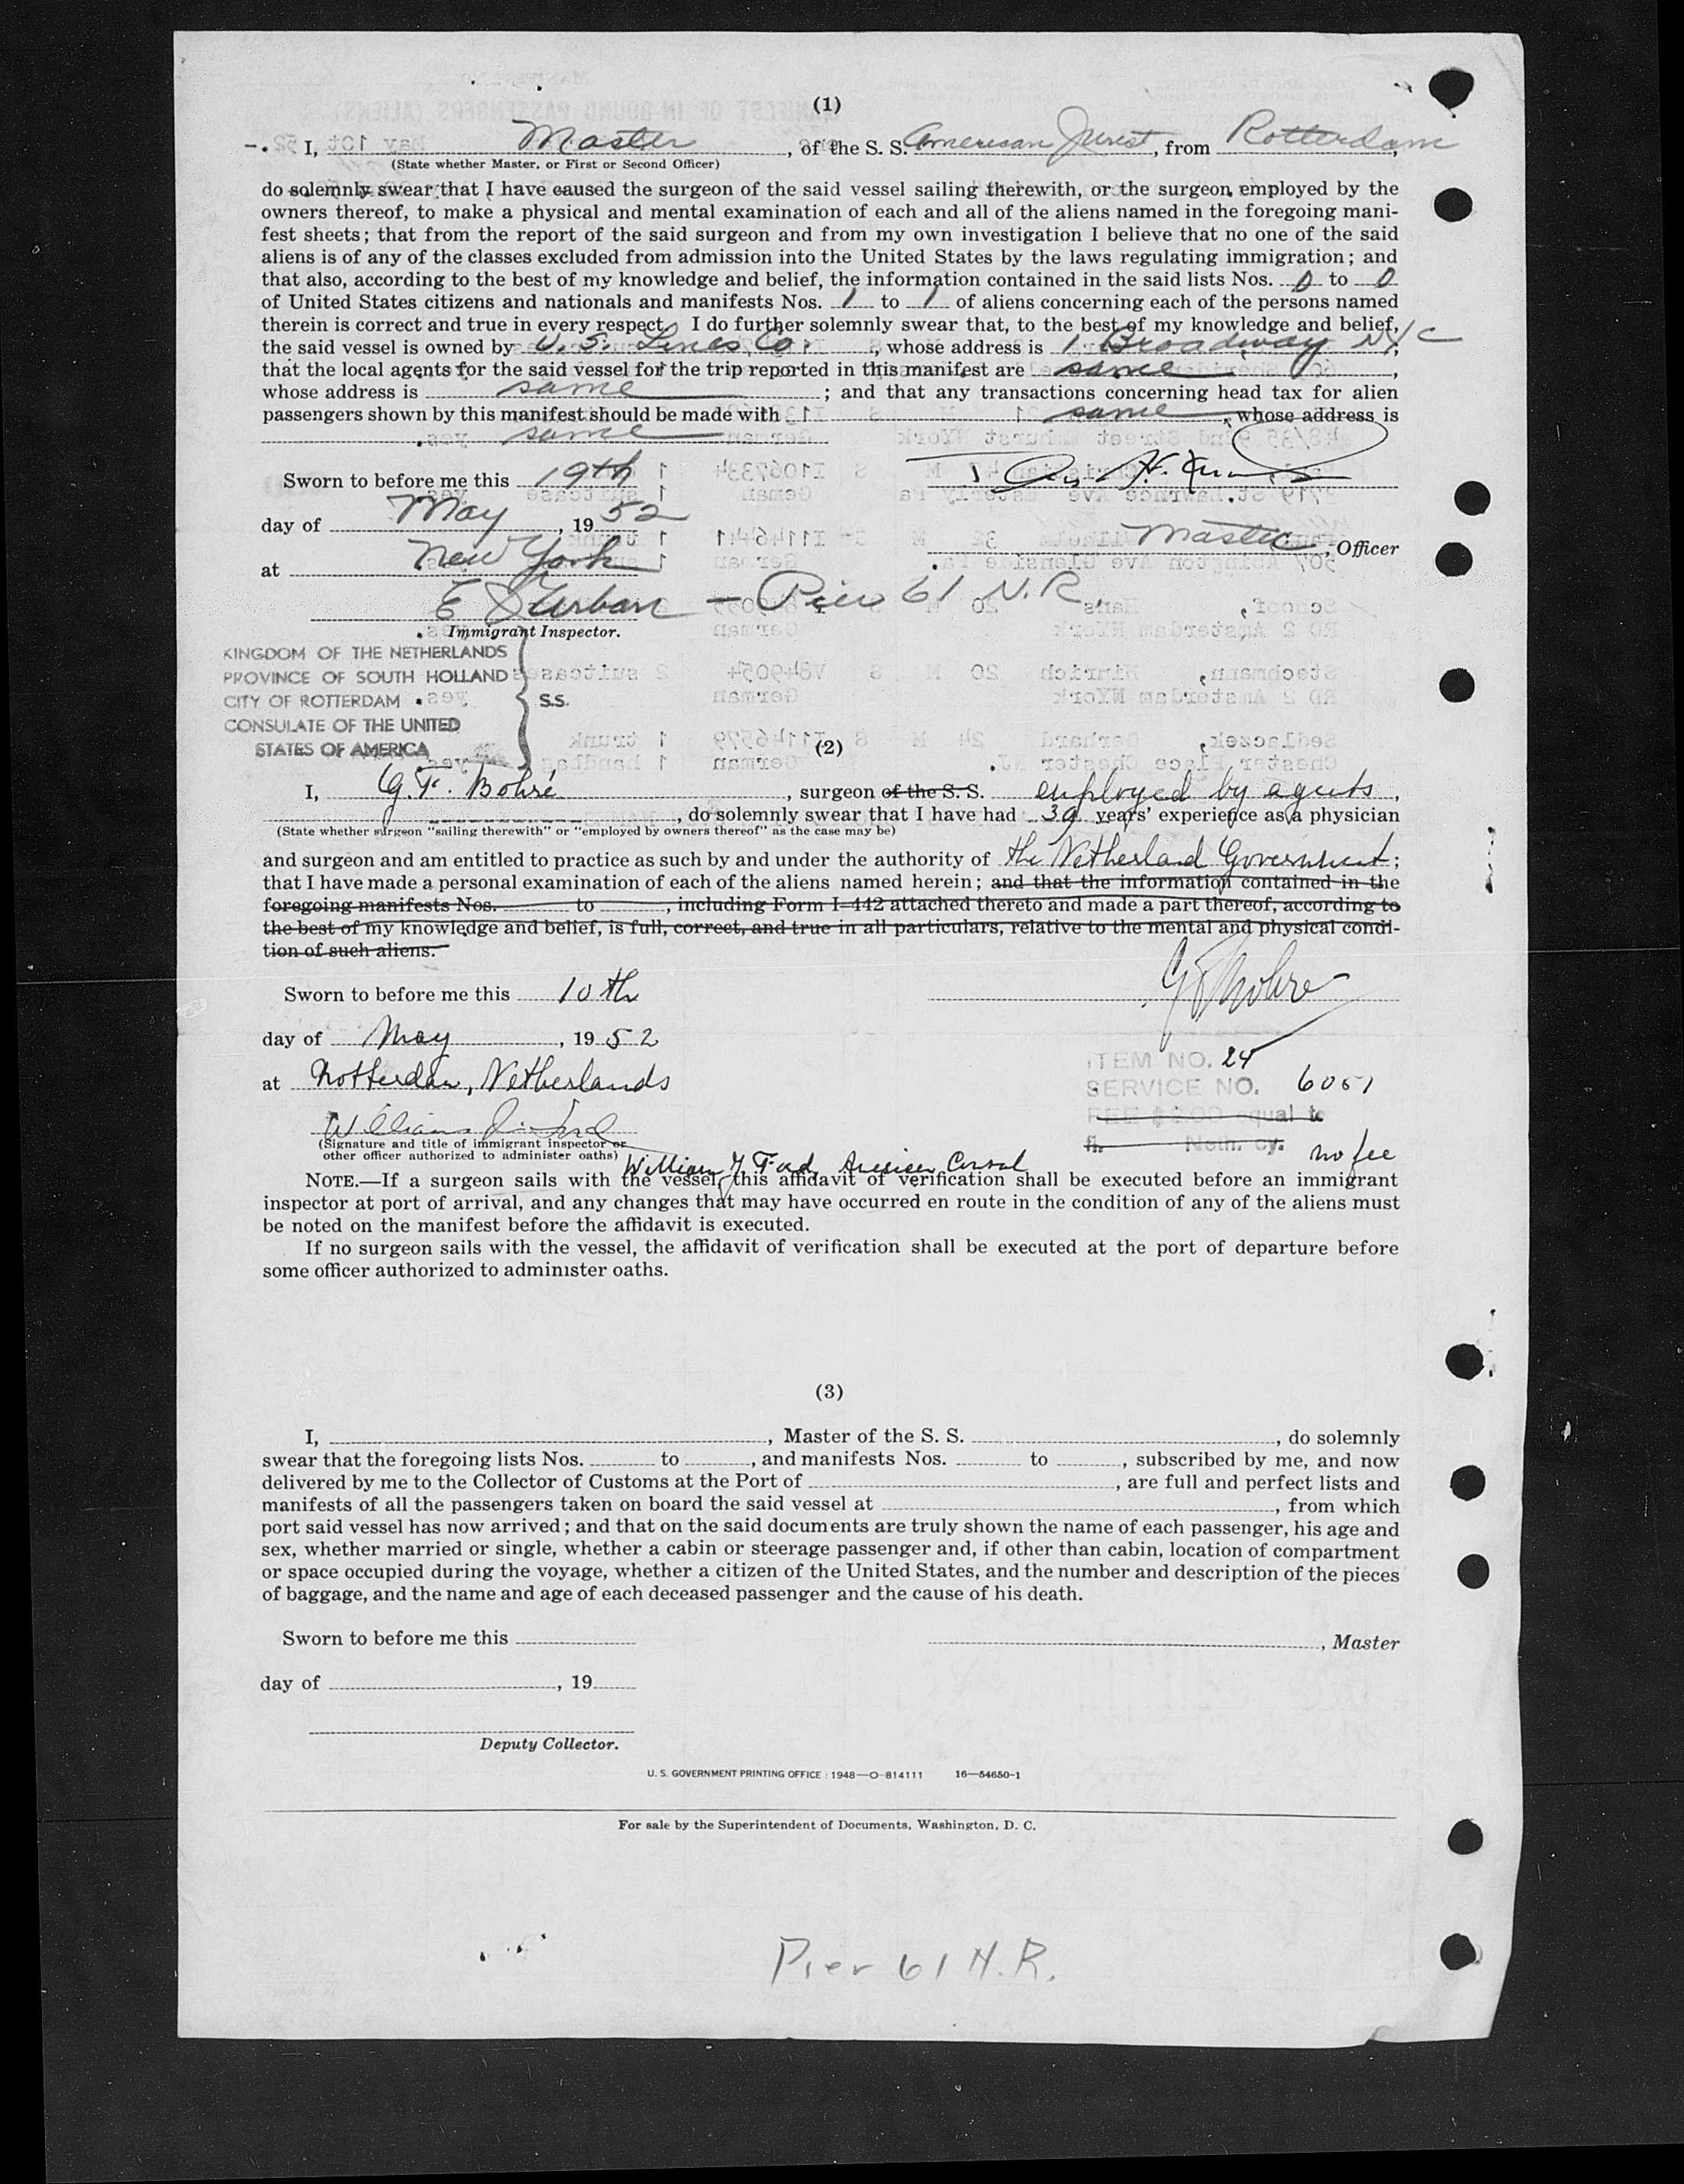 (1)
I, Master, of the S. S. American Jurist, from Rotterdam,
(State whether Master, or First or Second Officer)
do solemnly swear that I have caused the surgeon of the said vessel sailing therewith, or the surgeon employed by the
owners thereof, to make a physical and mental examination of each and all of the aliens named in the foregoing mani-
fest sheets; that from the report of the said surgeon and from my own investigation I believe that no one of the said
aliens is of any of the classes excluded from admission into the United States by the laws regulating immigration; and
that also, according to the best of my knowledge and belief, the information contained in the said lists Nos. 0 to 0
of United States citizens and nationals and manifests Nos. 1 to 1 of aliens concerning each of the persons named
therein is correct and true in every respect. I do further solemnly swear that, to the best of my knowledge and belief,
the said vessel is owned by U. S. Lines Co., whose address is 1 Broadway NYC;
that the local agents for the said vessel for the trip reported in this manifest are same,
whose address is same; and that any transactions concerning head tax for alien
passengers shown by this manifest should be made with same, whose address is
same
Sworn to before me this 19th
day of May, 1952
Master, Officer
at New York
E Urban — Pier 61 N.R.
Immigrant Inspector.
KINGDOM OF THE NETHERLANDS
PROVINCE OF SOUTH HOLLAND
CITY OF ROTTERDAM S.S.
CONSULATE OF THE UNITED
STATES OF AMERICA
(2)
I, G.F. Bohré, surgeon of the S. S. employed by agents,
, do solemnly swear that I have had 39 years' experience as a physician
(State whether surgeon "sailing therewith" or "employed by owners thereof" as the case may be)
and surgeon and am entitled to practice as such by and under the authority of the Netherland Government;
that I have made a personal examination of each of the aliens named herein; and that the information contained in the
foregoing manifests Nos. to , including Form I-442 attached thereto and made a part thereof, according to
the best of my knowledge and belief, is full, correct, and true in all particulars, relative to the mental and physical condi-
tion of such aliens.
GFBohre
Sworn to before me this 10th
day of May, 1952
ITEM NO. 24
at Rotterdam, Netherlands
SERVICE NO. 6051
FEE $2.00 equal to
(Signature and title of immigrant inspector or
fl. Neth. cy. no fee
other officer authorized to administer oaths)
William Ford, American Consul
NOTE.—If a surgeon sails with the vessel, this affidavit of verification shall be executed before an immigrant
inspector at port of arrival, and any changes that may have occurred en route in the condition of any of the aliens must
be noted on the manifest before the affidavit is executed.
If no surgeon sails with the vessel, the affidavit of verification shall be executed at the port of departure before
some officer authorized to administer oaths.
(3)
I, , Master of the S. S. , do solemnly
swear that the foregoing lists Nos. to , and manifests Nos. to , subscribed by me, and now
delivered by me to the Collector of Customs at the Port of , are full and perfect lists and
manifests of all the passengers taken on board the said vessel at , from which
port said vessel has now arrived; and that on the said documents are truly shown the name of each passenger, his age and
sex, whether married or single, whether a cabin or steerage passenger and, if other than cabin, location of compartment
or space occupied during the voyage, whether a citizen of the United States, and the number and description of the pieces
of baggage, and the name and age of each deceased passenger and the cause of his death.
Sworn to before me this
, Master
day of , 19
Deputy Collector.
U. S. GOVERNMENT PRINTING OFFICE : 1948—O-814111 16—54650-1
For sale by the Superintendent of Documents, Washington, D. C.
Pier 61 N.R.